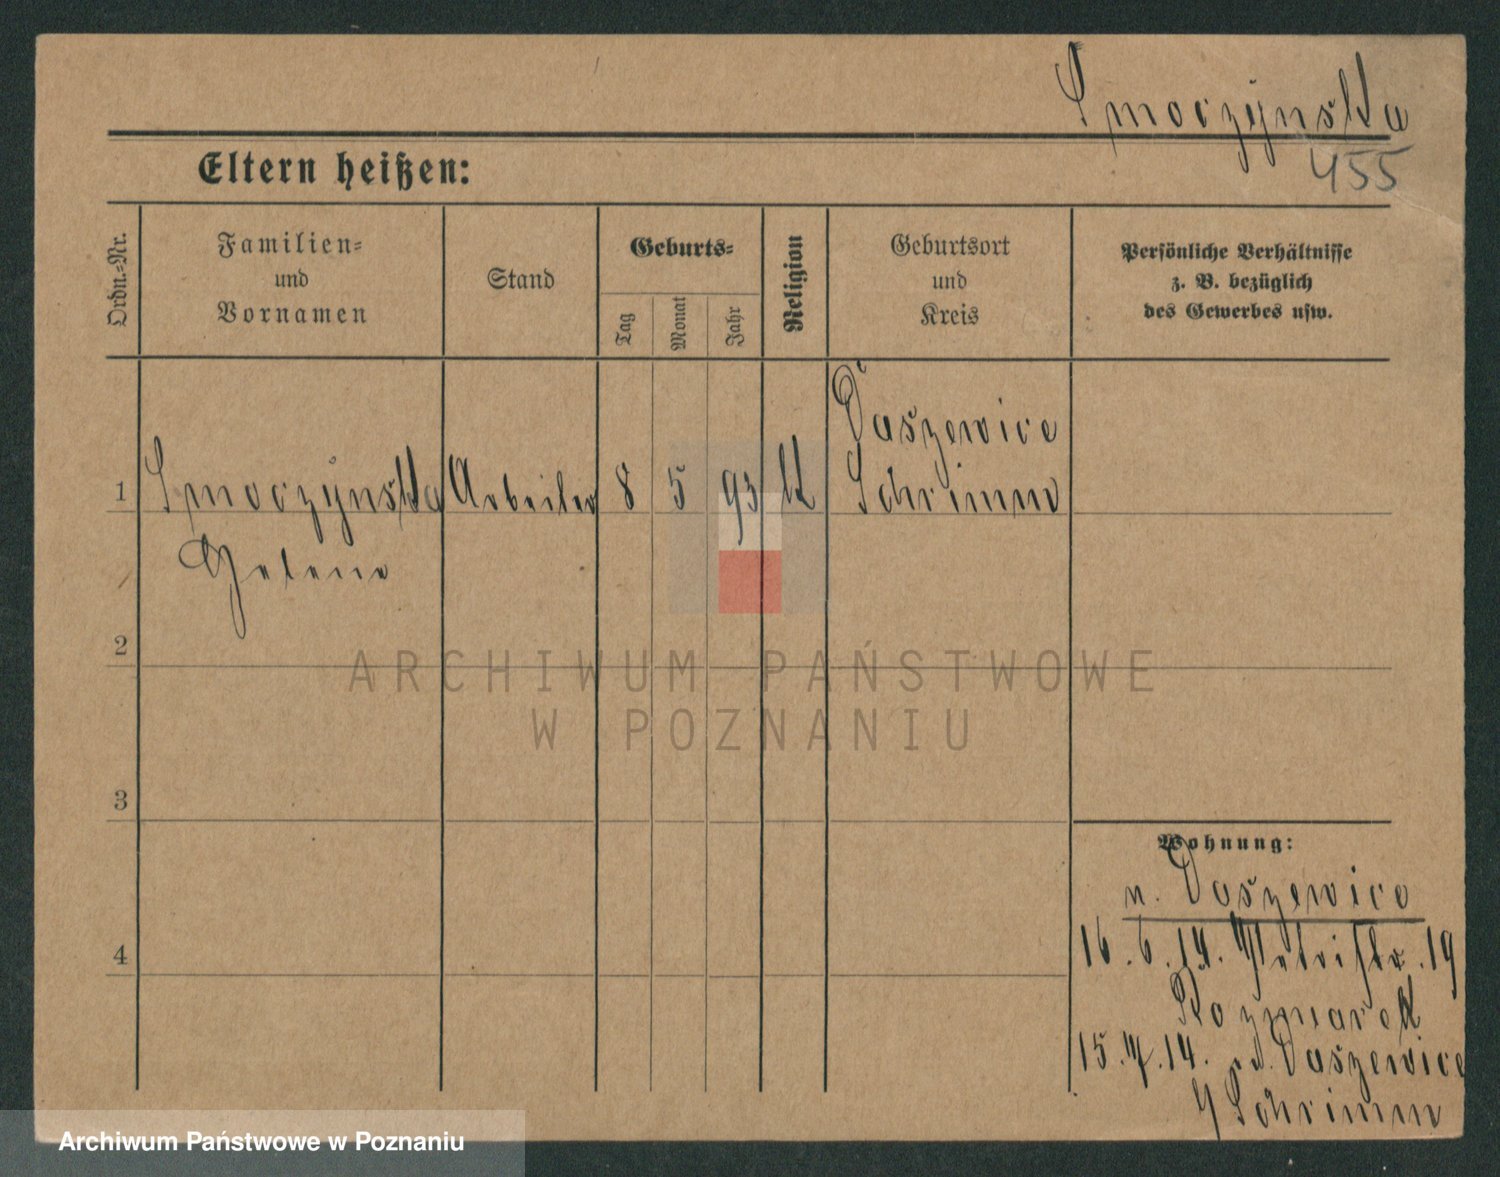 Smoczynska
455
Eltern heißen:
Ordn.=Nr.
Familien=
und
Vornamen
Stand
Geburts=
Tag
Monat
Jahr
Religion
Geburtsort
und
Kreis
Persönliche Verhältnisse
z. B. bezüglich
des Gewerbes usw.
Daszewice
1 Smoczynska Arbeiter 8 5 93 K Schrimm
Helene
2
3
4
Wohnung:
n. Daszewice
16.6.14. Petristr. 19
15.7.14. n. Daszewice
Schrimm
ARCHIWUM PAŃSTWOWE
W POZNANIU
Archiwum Państwowe w Poznaniu